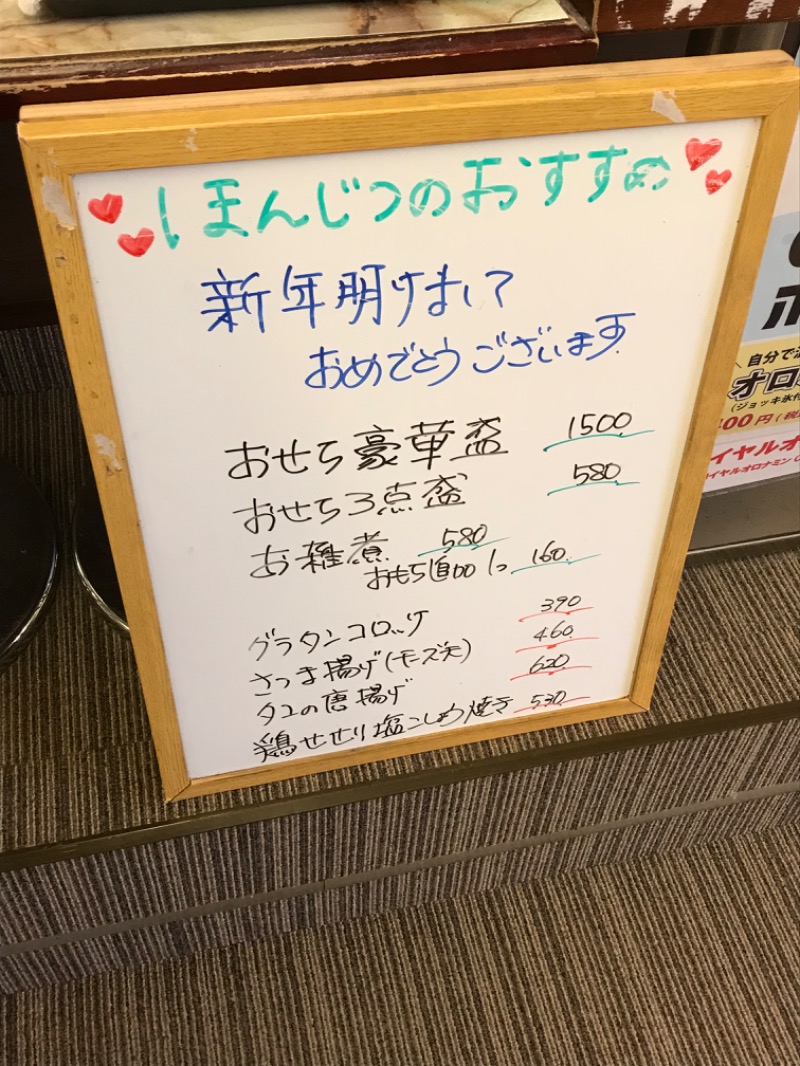 ほんじつのおすすめ
新年明けまして
おめでとうございます
おせち豪華盛 1500
おせち3点盛 580
お雑煮 580
おもち追加1つ 160
グラタンコロッケ 390
さつま揚げ(チーズ天) 460
タコの唐揚げ 620
鶏せせり塩こしょう焼き 530
自分で
オロ
(ジョッキ氷付
00円(税
イヤルオ
イヤルオロナミンC